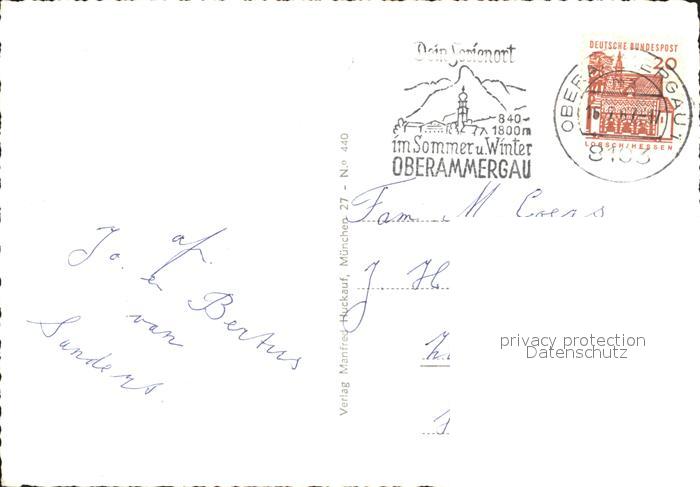 Dein Ferienort
840-
1800m
im Sommer u. Winter
OBERAMMERGAU
DEUTSCHE BUNDESPOST
20
LORSCH/HESSEN
OBERAMMERGAU 1
8103
Fam. M
J. H
privacy protection
Datenschutz
Verlag Manfred Huckauf, München 27 - N.º 440
af.
Jo. en Bertus
van
Sanders.